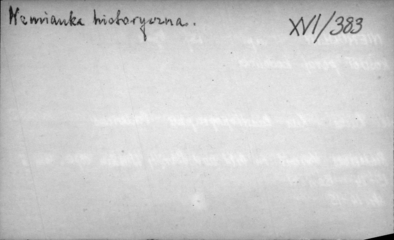 Wzmianka historyczna.
XVI/383